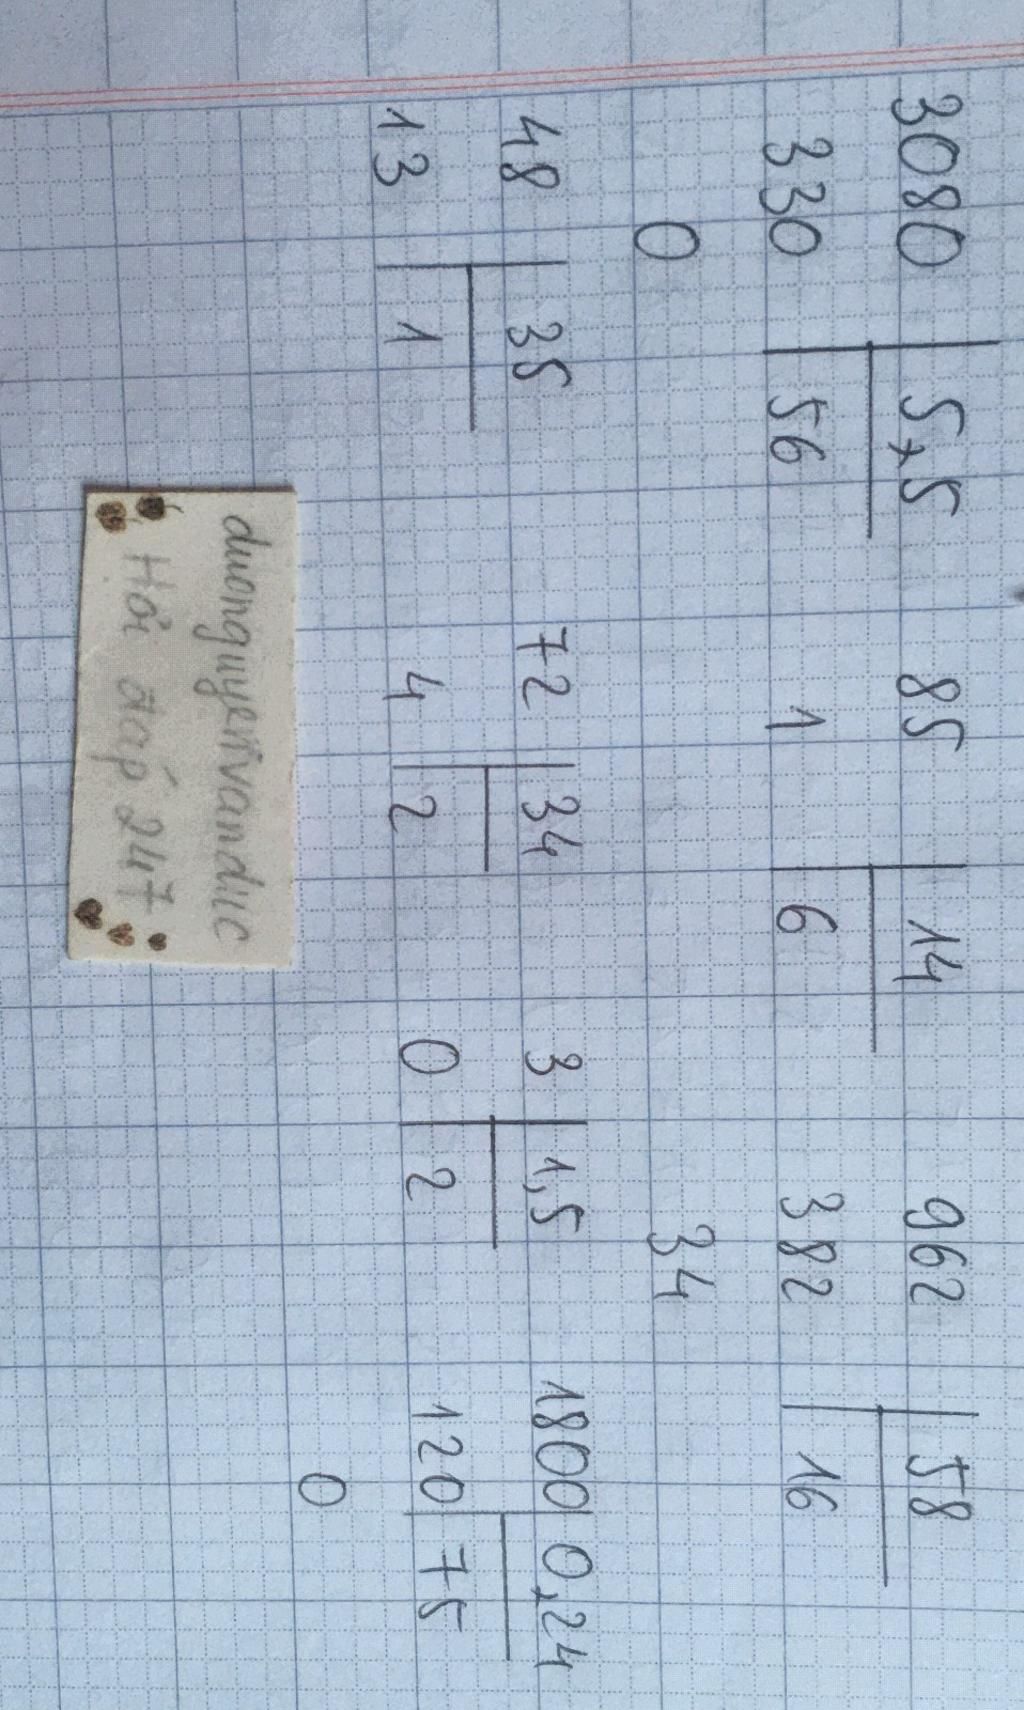 3080 5,5 85 14 962 58
330 56 1 6 382 16
0 34
48 35 72 34 3 1,5 1800 0,24
13 1 4 2 0 2 120 75
0
duonguyenvanduc
Hỏi đáp 247